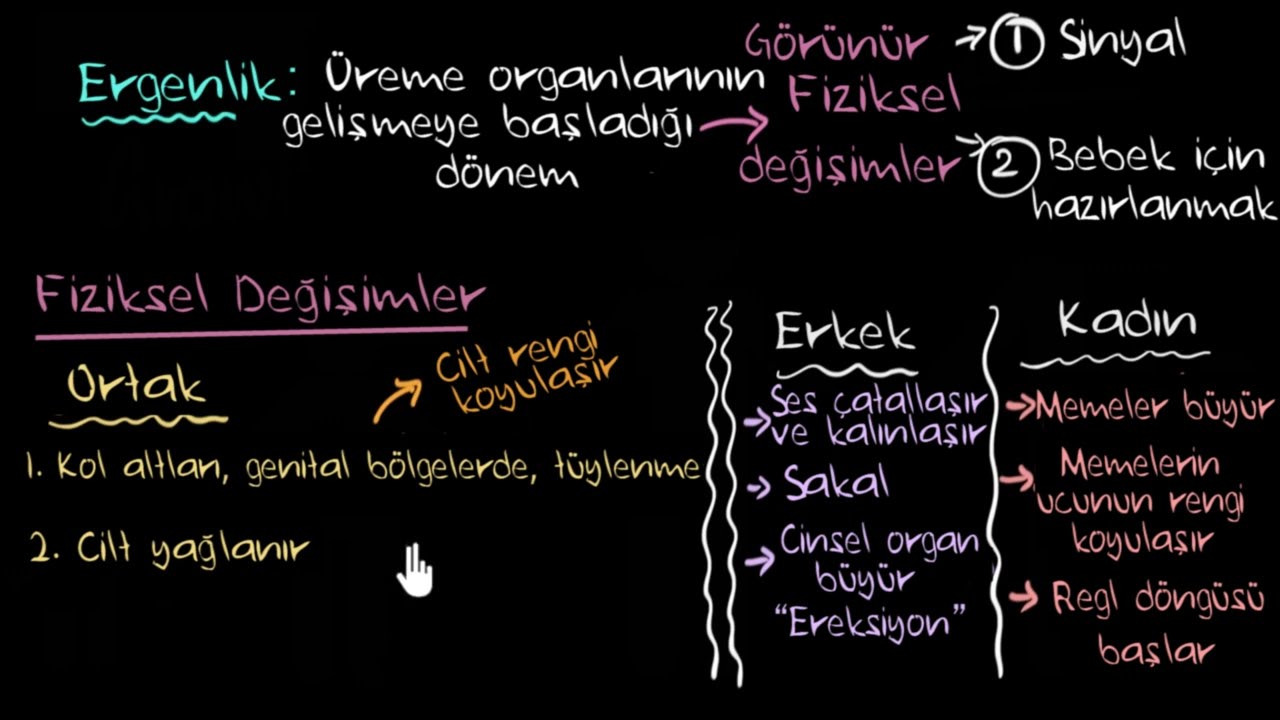 Ergenlik: Üreme organlarının
gelişmeye başladığı
dönem
Görünür
Fiziksel
değişimler
1 Sinyal
2 Bebek için
hazırlanmak
Fiziksel Değişimler
Ortak
Cilt rengi
koyulaşır
1. Kol altları, genital bölgelerde, tüylenme
2. Cilt yağlanır
Erkek
Ses çatallaşır
ve kalınlaşır
Sakal
Cinsel organ
büyür
"Ereksiyon"
Kadın
Memeler büyür
Memelerin
ucunun rengi
koyulaşır
Regl döngüsü
başlar